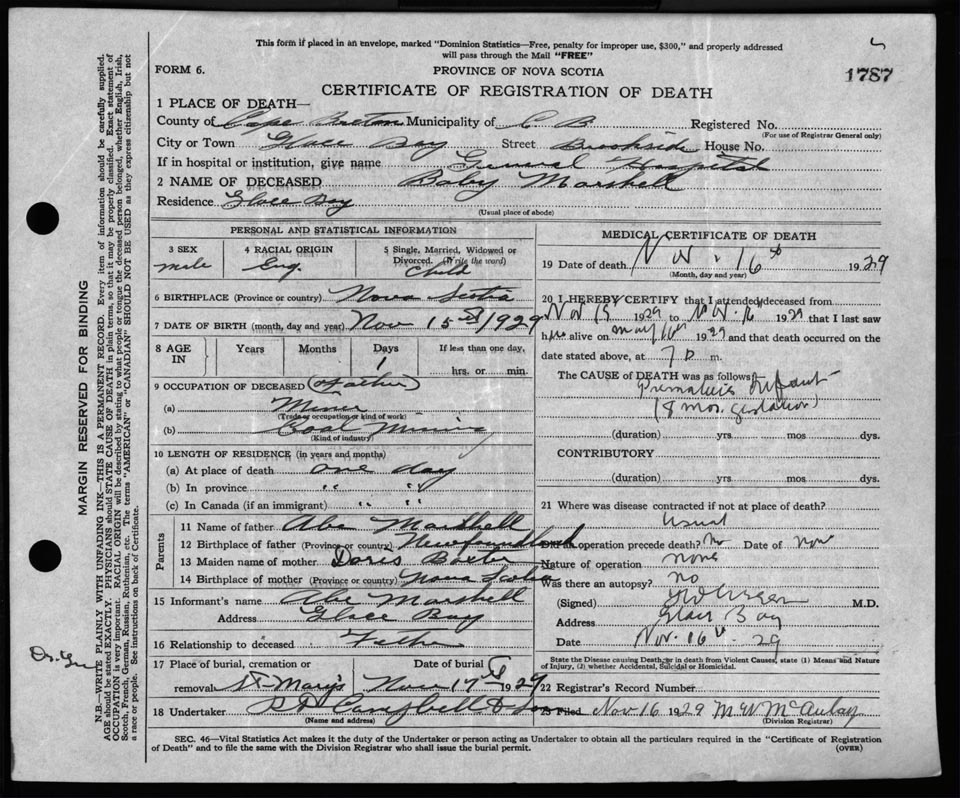 This form if placed in an envelope, marked "Dominion Statistics—Free, penalty for improper use, $300," and properly addressed
will pass through the Mail "FREE"
FORM 6.
PROVINCE OF NOVA SCOTIA
1787
CERTIFICATE OF REGISTRATION OF DEATH
1 PLACE OF DEATH—
County of Cape Breton Municipality of C B Registered No.
(For use of Registrar General only)
City or Town Glace Bay Street Brookside House No.
If in hospital or institution, give name General Hospital
2 NAME OF DECEASED Baby Marshell
Residence Glace Bay
(Usual place of abode)
PERSONAL AND STATISTICAL INFORMATION
3 SEX male
4 RACIAL ORIGIN Eng.
5 Single, Married, Widowed or
Divorced. (Write the word)
Child
6 BIRTHPLACE (Province or country) Nova Scotia
7 DATE OF BIRTH (month, day and year) Nov 15th 1929
8 AGE IN Years Months Days 1 If less than one day,
hrs. or min.
9 OCCUPATION OF DECEASED (Father)
(a) Miner
(Trade or occupation or kind of work)
(b) Coal Mining
(Kind of industry)
10 LENGTH OF RESIDENCE (in years and months)
(a) At place of death one day
(b) In province " "
(c) In Canada (if an immigrant) " "
Parents
11 Name of father Abe Marshell
12 Birthplace of father (Province or country) Newfoundland
13 Maiden name of mother Doris Baxter
14 Birthplace of mother (Province or country) Nova Scotia
15 Informant's name Abe Marshell
Address Glace Bay
16 Relationship to deceased Father
17 Place of burial, cremation or Date of burial
removal St Mary's Nov 17th 1929
18 Undertaker Campbell & Son
(Name and address)
MEDICAL CERTIFICATE OF DEATH
19 Date of death Nov. 16th 1929
(Month, day and year)
20 I HEREBY CERTIFY that I attended deceased from
Nov 15 1929 to Nov. 16 1929 that I last saw
h alive on 16th 1929 and that death occurred on the
date stated above, at 7 P m.
The CAUSE of DEATH was as follows:—
Premature Infant
(8 mos. gestation)
(duration) yrs. mos dys.
CONTRIBUTORY
(duration) yrs. mos dys.
21 Where was disease contracted if not at place of death?
Usual
Did an operation precede death? No Date of
Nature of operation none
Was there an autopsy? no
(Signed) M.D.
Address Glace Bay
Date Nov. 16th 29
State the Disease causing Death, or in death from Violent Causes, state (1) Means and Nature
of Injury, (2) whether Accidental, Suicidal or Homicidal.
22 Registrar's Record Number
Filed Nov 16 1929 M W McAulay
(Division Registrar)
SEC. 46—Vital Statistics Act makes it the duty of the Undertaker or person acting as Undertaker to obtain all the particulars required in the "Certificate of Registration
of Death" and to file the same with the Division Registrar who shall issue the burial permit.
(OVER)
MARGIN RESERVED FOR BINDING
N.B.—WRITE PLAINLY WITH UNFADING INK—THIS IS A PERMANENT RECORD. Every item of information should be carefully supplied.
AGE should be stated EXACTLY. PHYSICIANS should STATE CAUSE OF DEATH in plain terms, so that it may be properly classified. Exact statement of
OCCUPATION is very important. RACIAL ORIGIN will be described by stating to what people or tongue the deceased person belonged, whether English, Irish,
Scotch, French, German, Russian, Ruthenian, etc. The terms "AMERICAN" or "CANADIAN" SHOULD NOT BE USED as they express citizenship but not
a race or people. See instructions on back of Certificate.